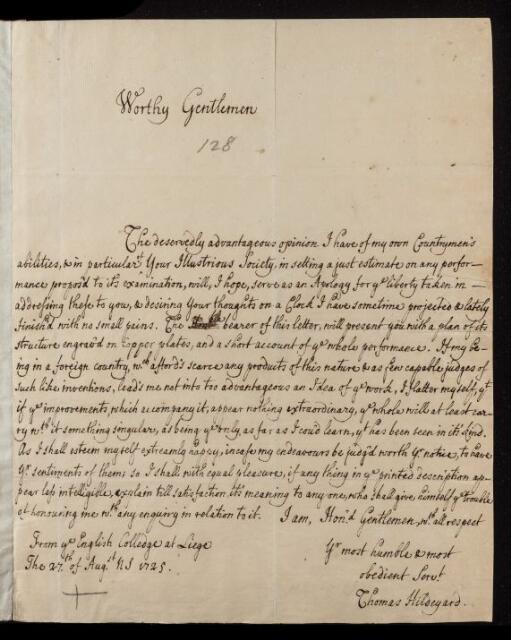 Worthy Gentlemen
128
The deservedly advantageous opinion I have of my own Countrymen's
abilities, & in particular Your Illustrious Society, in setting a just estimate on any perfor-
mance propos'd to it's examination, will, I hope, serve as an Apology for ye liberty taken in
addressing these to you, & desiring Your thoughts on a Clock I have sometime projected & lately
finish'd with no small pains. The bearer of this letter, will present you with a plan of it's
structure engrav'd on Copper plates, and a short account of ye whole performance. If my be-
ing in a foreign country, wch affords scarce any products of this nature & as few capable judges of
such like inventions, leads me not into too advantageous an Idea of ye work, I flatter myself, yt
if ye improvements, which accompany it, appear nothing extraordinary, ye whole will at least car-
ry wth it something singular, as being ye only, as far as I coud learn, yt has been seen in it's kind.
As I shall esteem myself extreamly happy, incase my endeavours be judg'd worth Yr notice, to have
Yr sentiments of them; so I shall with equal pleasure, if any thing in ye printed description ap-
pear less intelligible, explain till satisfaction it's meaning to any one, who shall give himself ye trouble
of honouring me wth any enquiry in relation to it. I am, Hon'd Gentlemen, wth all respect
From ye English Colledge at Liege
The 27th of Augst NS 1725.
Yr most humble & most
obedient Servt
Thomas Hildeyard.